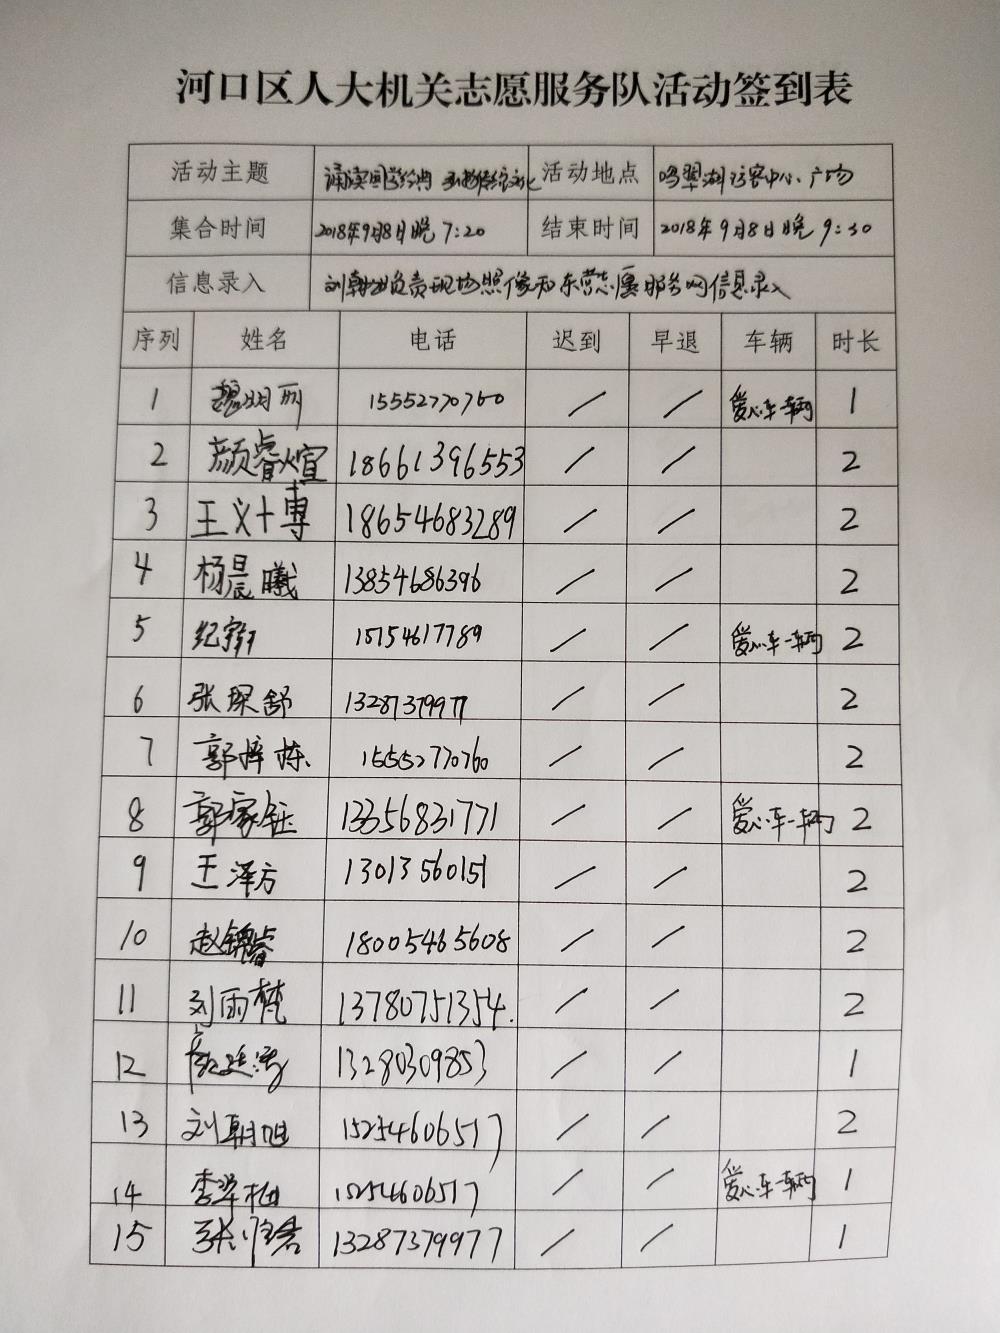 河口区人大机关志愿服务队活动签到表
活动主题 诵读国学经典 弘扬传统文化 活动地点 鸣翠湖访客中心、广场
集合时间 2018年9月8日晚 7:20 结束时间 2018年9月8日晚 9:30
信息录入 刘朝旭负责现场照像和东营志愿服务网信息录入
序列 姓名 电话 迟到 早退 车辆 时长
1 魏明丽 15552770760 / / 爱心车辆 1
2 颜睿煊 18661396553 / / 2
3 王义博 18654683289 / / 2
4 杨晨曦 13854686396 / / 2
5 15154617789 / / 爱心车辆 2
6 张琛舒 13287379977 / / 2
7 郭梓栋 15552770760 / / 2
8 郭家钰 13356831771 / / 爱心车辆 2
9 王泽方 13013560151 / / 2
10 赵锦睿 18005465608 / / 2
11 刘雨梵 13780751354. / / 2
12 13280309853 / / 1
13 刘朝旭 15254606517 / / 2
14 15254606517 / / 爱心车辆 1
15 13287379977 / / 1